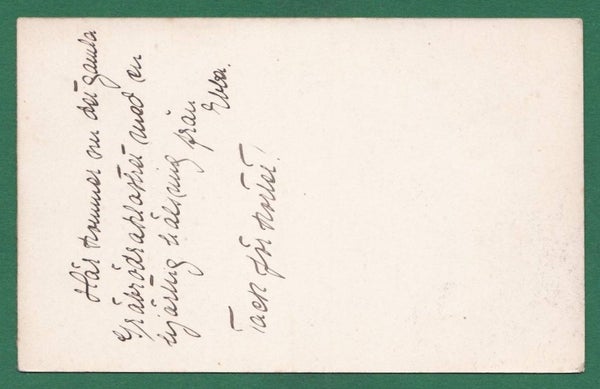 Här kommer nu det gamla
Gråbrödraklostret med en
hjärtlig hälsning från
Ebba.
Tack för kortet!